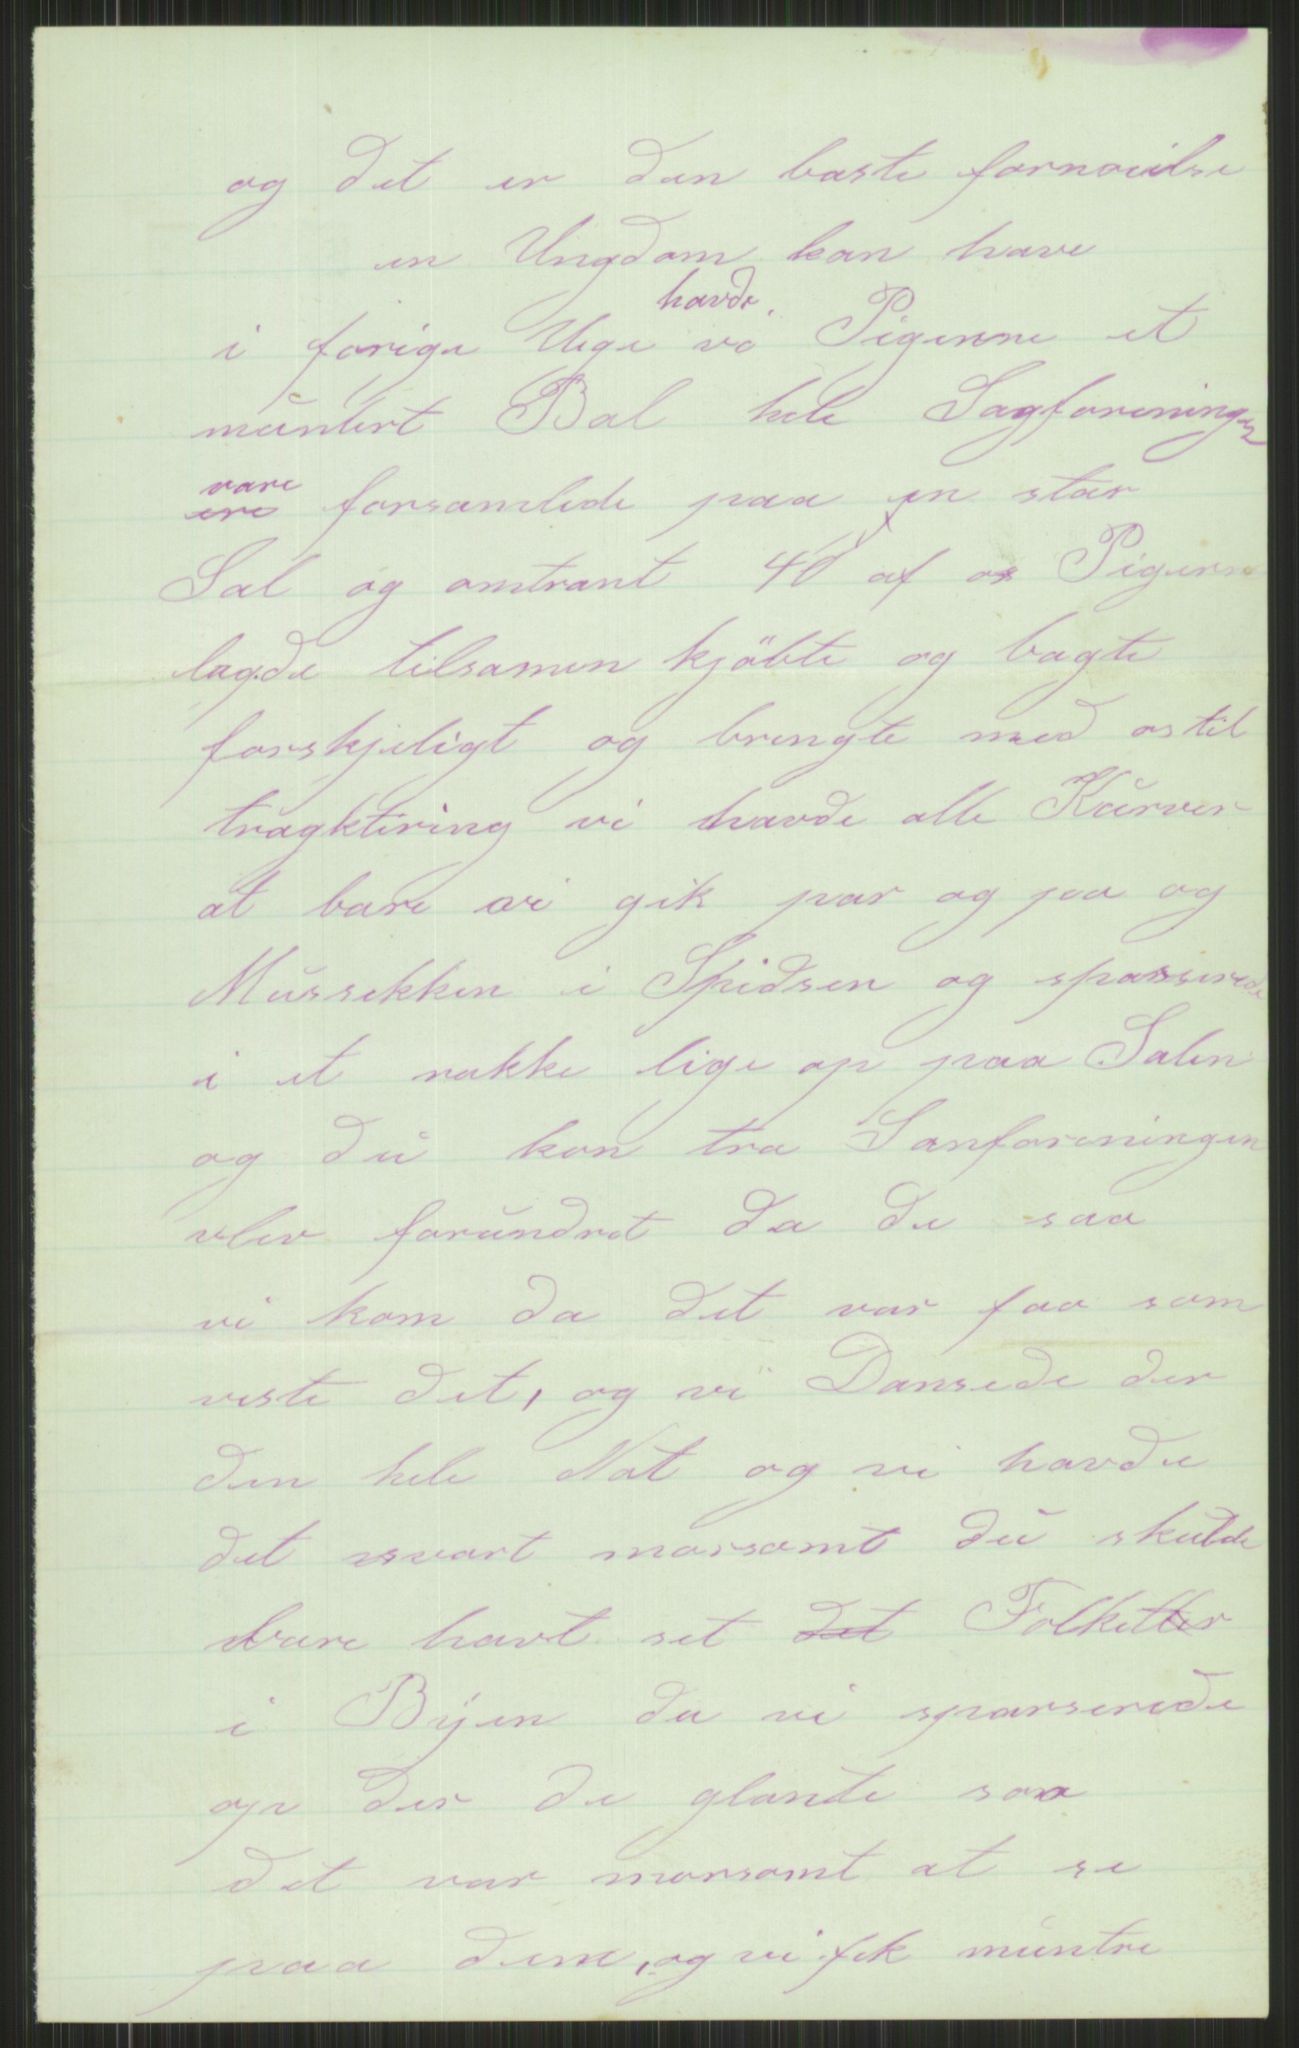 og det er den bæste fornøielse
en Ungdom kan have
i forige Uge havde Pigerne et
muntert Bal hele Sagforeningen
vare forsamlede paa en stor
Sal og omtrant 40 af os Pigerne
lagde tilsamen kjöbte og bagte
forskjeligt og brengte med os til
tragktering vi havde alle Kurver
at bære vi gik par og paa og
Mussekken i Spidsen og spasserede
i et række lige op paa Salen
og du kan tro Sanforeningen
blev forundret da de saa
vi kom da det var faa som
viste det, og vi Dansede der
den hele Nat og vi havde
det svært morsomt du skulde
bare havt set det Folket
i Byen da vi spasserede
op der de glante saa
det var morsomt at se
paa dem, og vi fik muntre